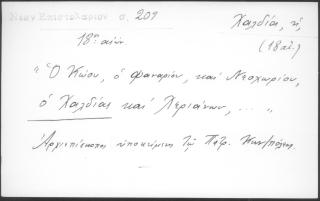 Νέον Επιστολάριον σ. 209
Χαλδίας, ἡ
18ος αἰών.
(18 αἰ.)
"Ὁ Κώου, ὁ Φαναρίου, καὶ Νεοχωρίου,
ὁ Χαλδίας καὶ Χεριάνων, ... "
Ἀρχιεπίσκοπος ὑποκείμενος τῷ Πατρ. Κων/πόλεως.